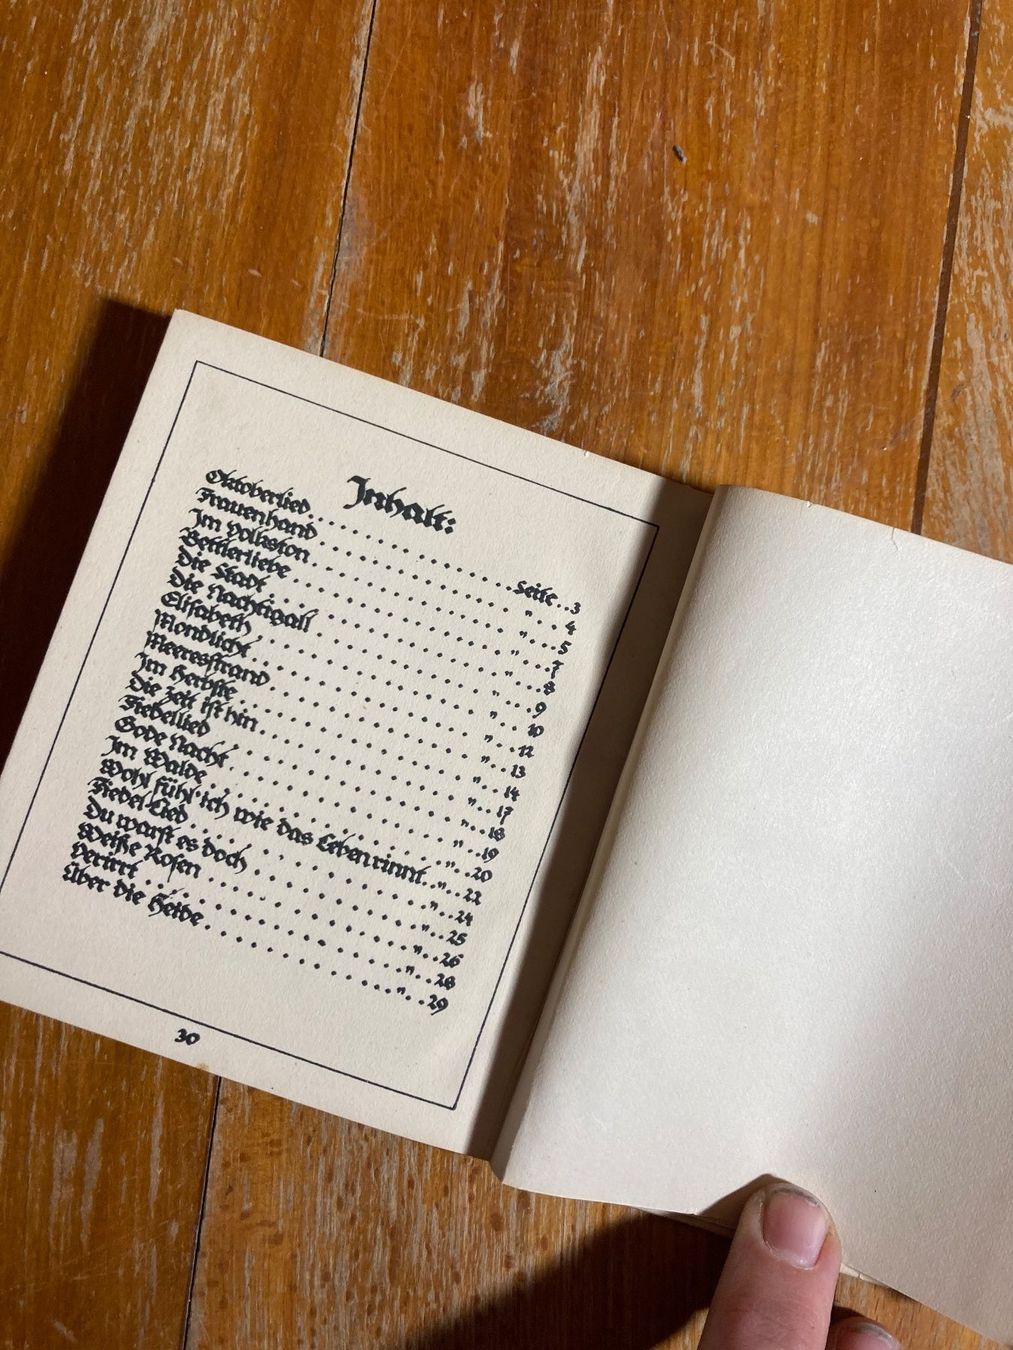 Inhalt:
Oktoberlied . . . . . . . . . . Seite . . 3
Frauenhand . . . . . . . . . . " . . 4
Im Volkston . . . . . . . . . . " . . 5
Bettlerliebe . . . . . . . . . . " . . 7
Die Stadt . . . . . . . . . . " . . 8
Die Nachtigall . . . . . . . . . . " . . 9
Elisabeth . . . . . . . . . . " . . 10
Mondlicht . . . . . . . . . . " . . 12
Meeresstrand . . . . . . . . . . " . . 13
Im Herbste . . . . . . . . . . " . . 14
Die Zeit ist hin . . . . . . . . . . " . . 17
Fiedellied . . . . . . . . . . " . . 18
Gode Nacht . . . . . . . . . . " . . 19
Im Walde . . . . . . . . . . " . . 20
Wohl fühl' ich wie das Leben rinnt . . " . . 22
Fiedel-Lied . . . . . . . . . . " . . 24
Du warst es doch . . . . . . . . . . " . . 25
Weiße Rosen . . . . . . . . . . " . . 26
Verirrt . . . . . . . . . . " . . 28
Über die Heide . . . . . . . . . . " . . 29
30